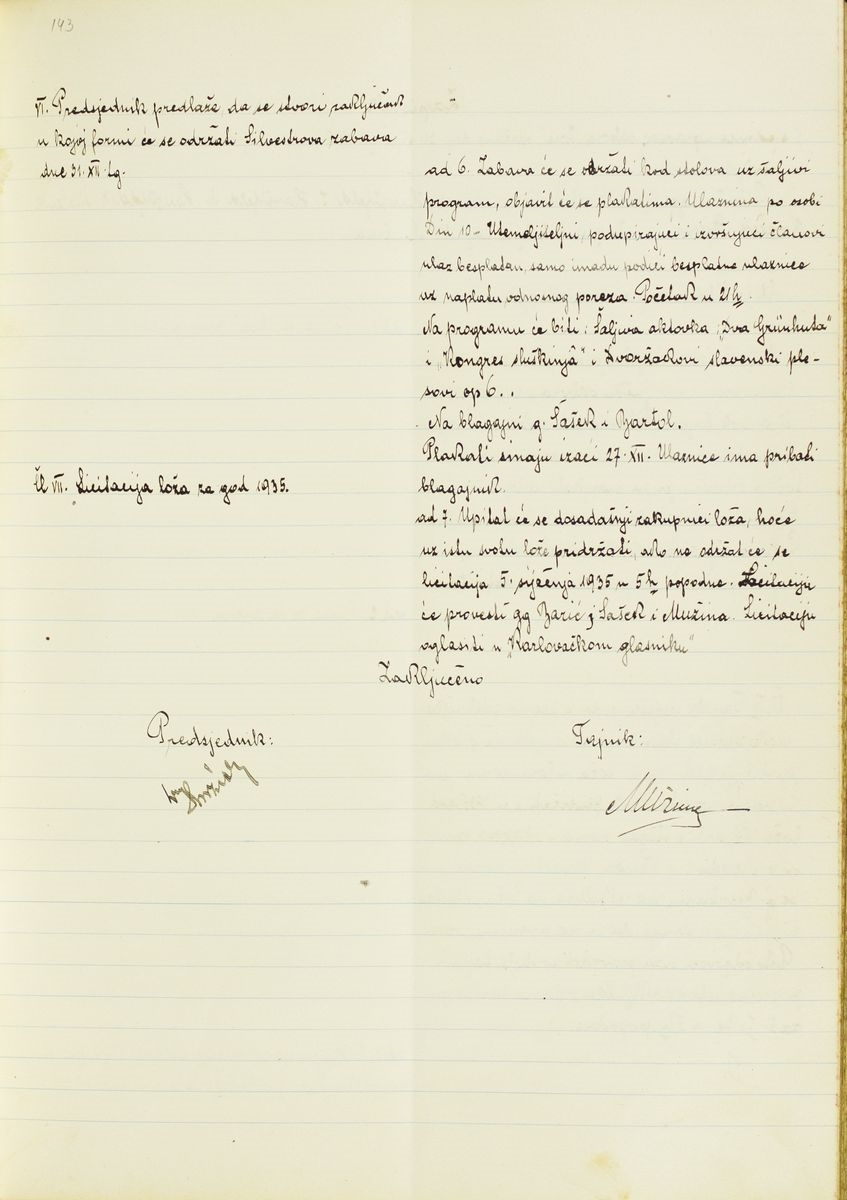 143
VI. Predsjednik predlaže da se stvori zaključak
u kojoj formi će se održati Silvestrova zabava
dne 31. XII. t.g.
ad 6. Zabava će se održati kod stolova uz šaljivi
program, objavit će se plakatima. Ulaznina po osobi
Din 10- Utemeljiteljni, podupirajući i izvršujući članovi
ulaz besplatan, samo imadu podići besplatne ulaznice
uz naplatu odnosnog poreza. Početak u 21h.
Na programu će biti: Šaljiva aktovka „Dva Grünhuta"
i „Kongres sluškinjâ" i Dvoržakovi slavenski ple-
sovi op 6..
Na blagajni g. Šašek i Bartol.
Plakati imaju izaći 27. XII. Ulaznice ima pribati
blagajnik.
Čl VII. Licitacija loža za god 1935.
ad 7. Upitat će se dosadašnji zakupnici loža, hoće
uz istu svotu lože pridržati, ako ne održat će se
licitacija 5. siječnja 1935 u 5h popodne. Licitaciju
će provesti gg Barić, Šašek i Mužina. Licitaciju
oglasiti u „Karlovačkom glasniku"
Zaključeno
Predsjednik:
Tajnik:
Mužina